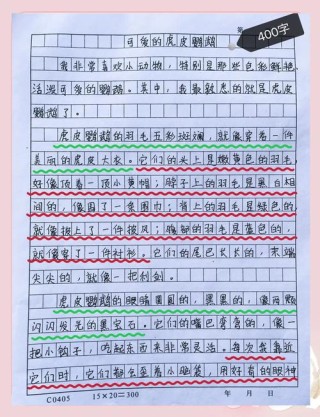 第
400字
可爱的虎皮鹦鹉
我非常喜欢小动物，特别是那些色彩鲜艳、
活泼可爱的鹦鹉。其中，我最喜欢的就是虎皮
鹦鹉了。
虎皮鹦鹉的羽毛五彩斑斓，就像穿着一件
美丽的虎皮大衣。它们的头上是嫩黄色的羽毛，
好像顶着一顶小黄帽；脖子上的羽毛是黑白相
间的，像围了一条围巾；背上的羽毛是绿色的，
就像披上了一件披风；胸部的羽毛是蓝色的，
就像穿了一件衬衫。它们的尾巴长长的，末端
尖尖的，就像一把利剑。
虎皮鹦鹉的眼睛圆圆的，黑黑的，像两颗
闪闪发光的黑宝石。它们的嘴巴弯弯的，像一
把小钩子，吃起东西来非常灵活。每次我靠近
它们时，它们都会歪着小脑袋，用好奇的眼神
C0405 15×20=300 年 月 日